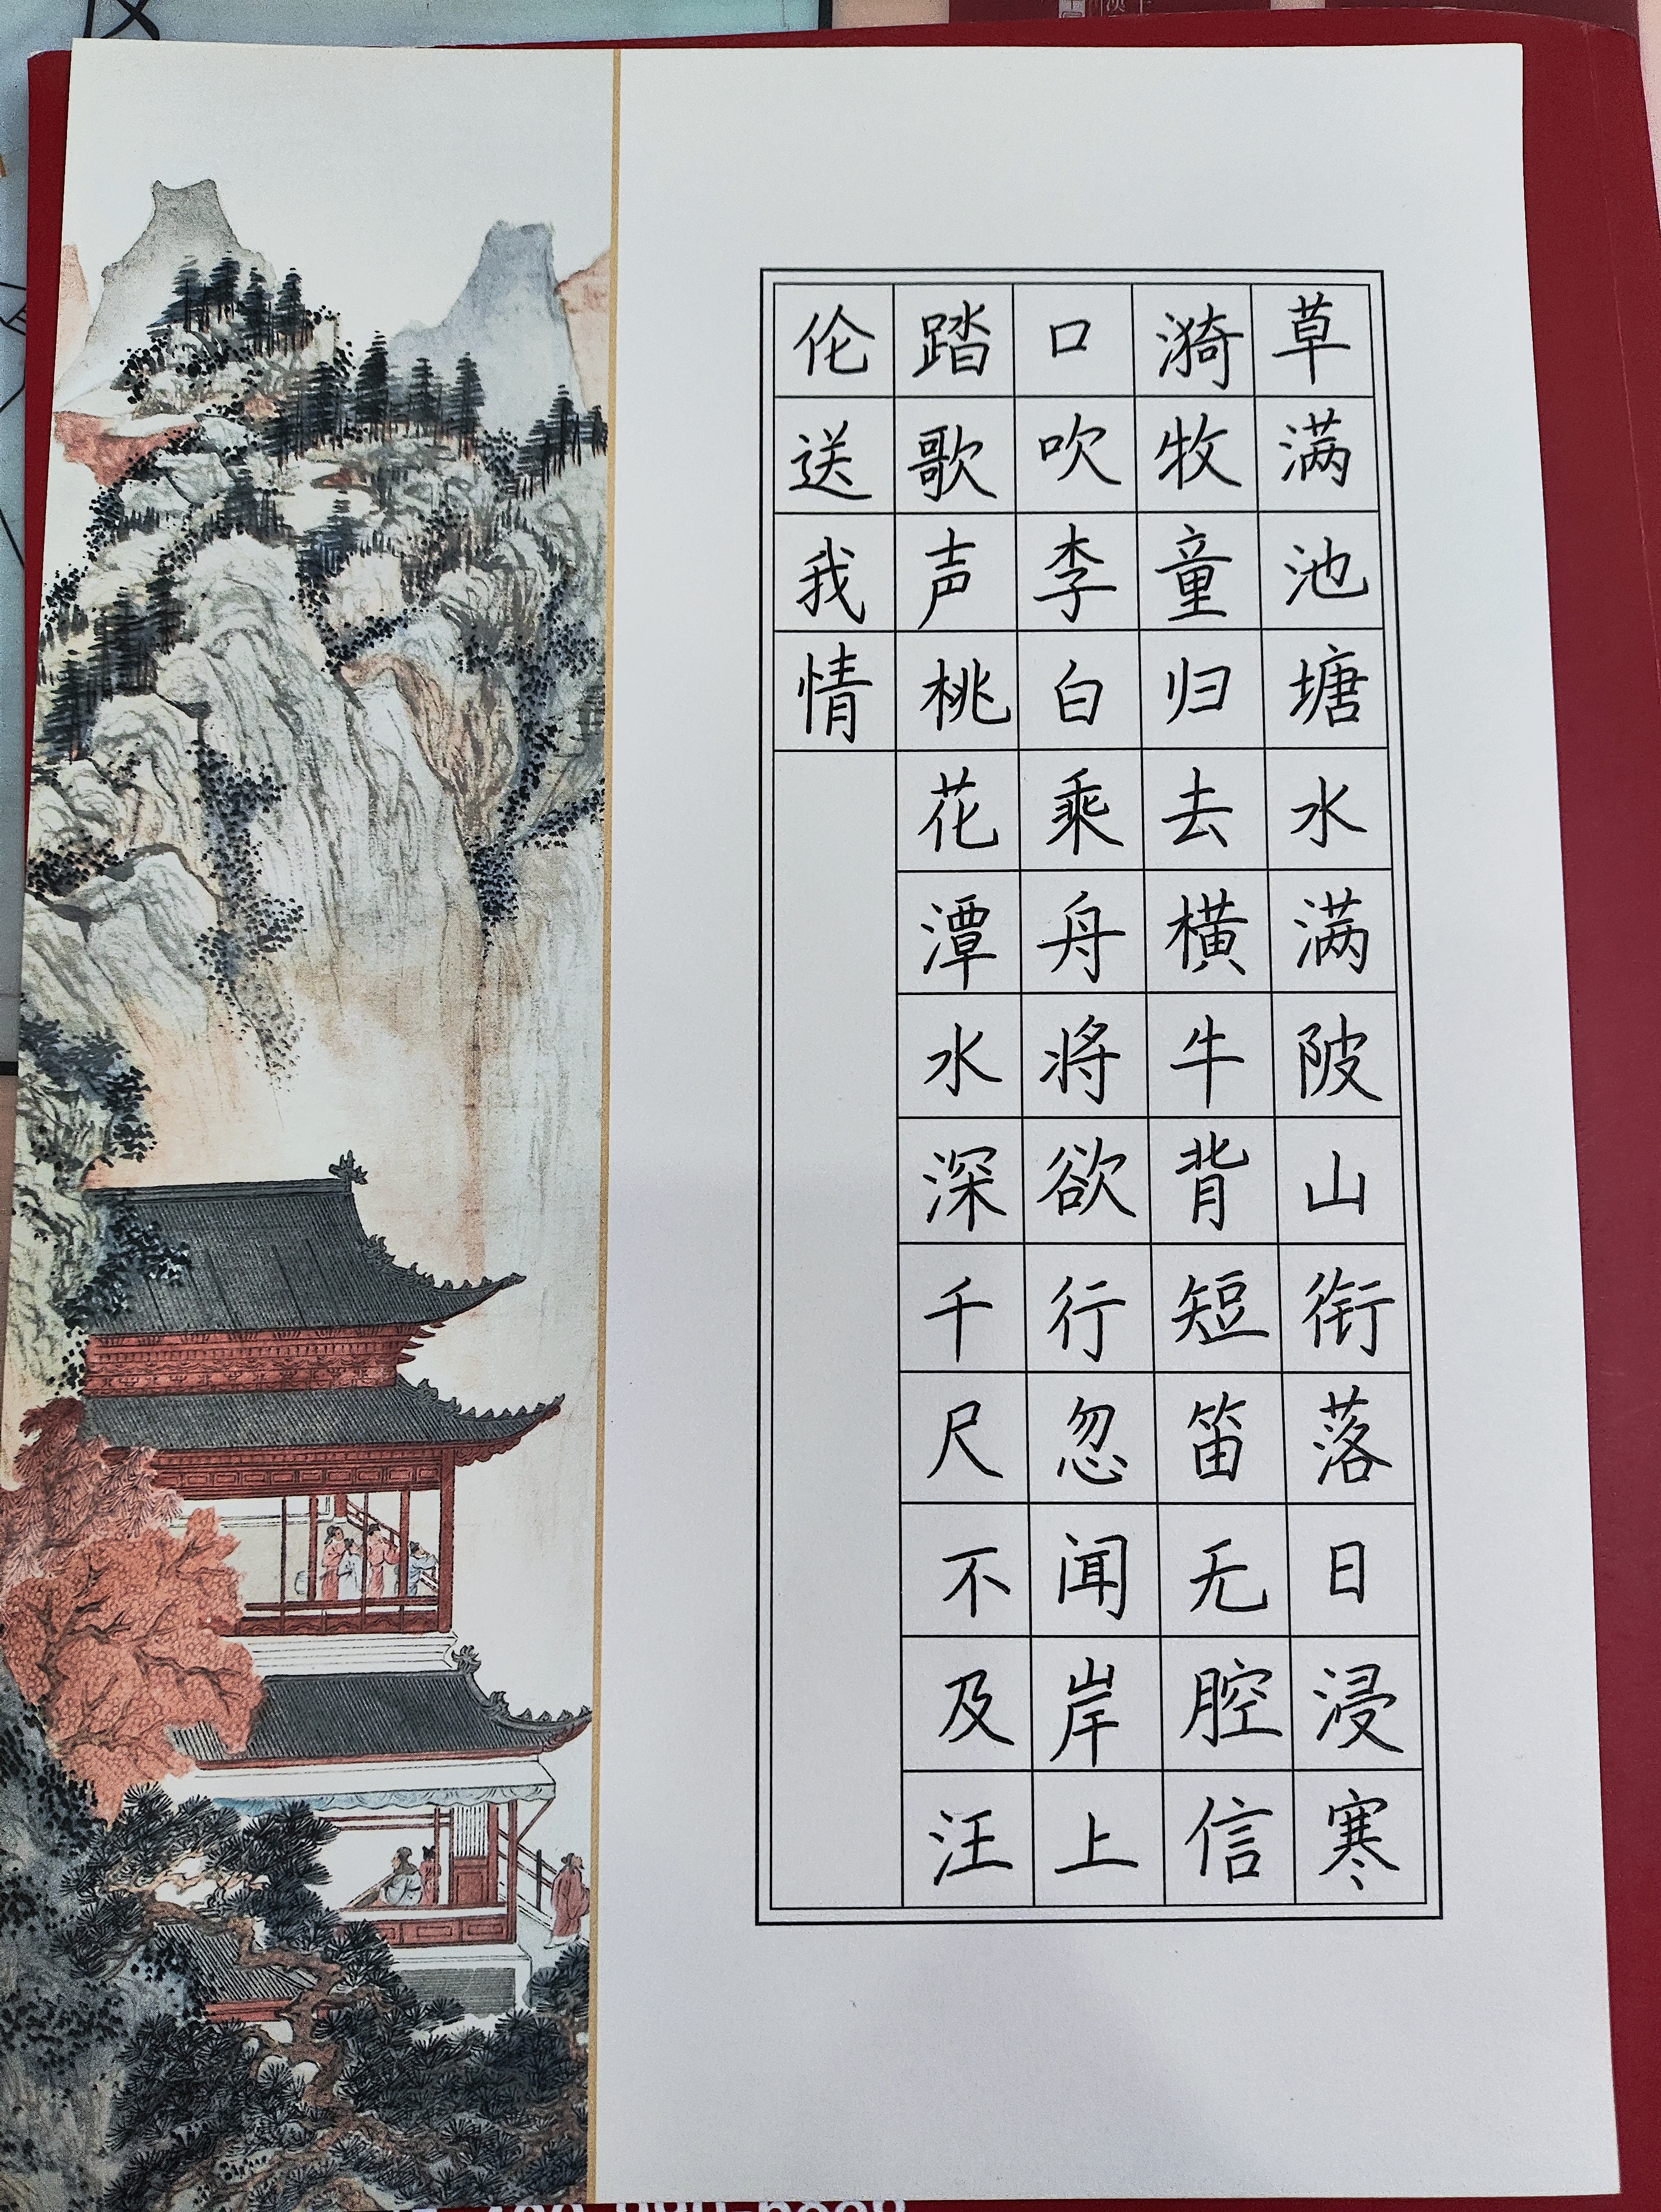 草满池塘水满陂山衔落日浸寒
漪牧童归去横牛背短笛无腔信
口吹李白乘舟将欲行忽闻岸上
踏歌声桃花潭水深千尺不及汪
伦送我情